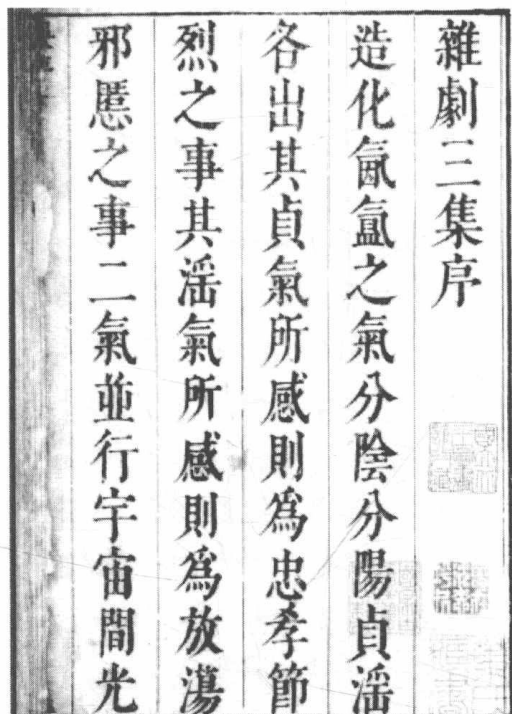 雜劇三集序
造化氤氳之氣分陰分陽貞滛
各出其貞氣所感則爲忠孝節
烈之事其滛氣所感則爲放蕩
邪慝之事二氣並行宇宙間光